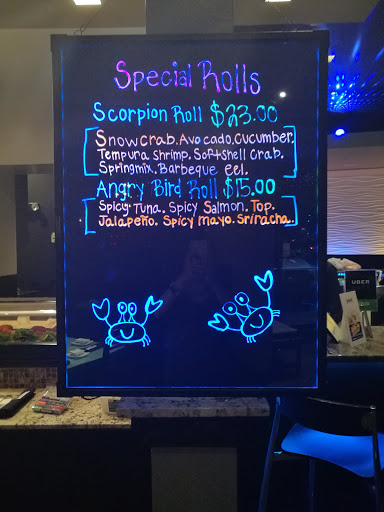 Special Rolls
Scorpion Roll $23.00
Snowcrab. Avocado. Cucumber.
Tempura shrimp. Softshell Crab.
Springmix. Barbeque eel.
Angry Bird Roll $15.00
Spicy. Tuna. Spicy Salmon. Top.
Jalapeño. Spicy mayo. Sriracha.
UBER